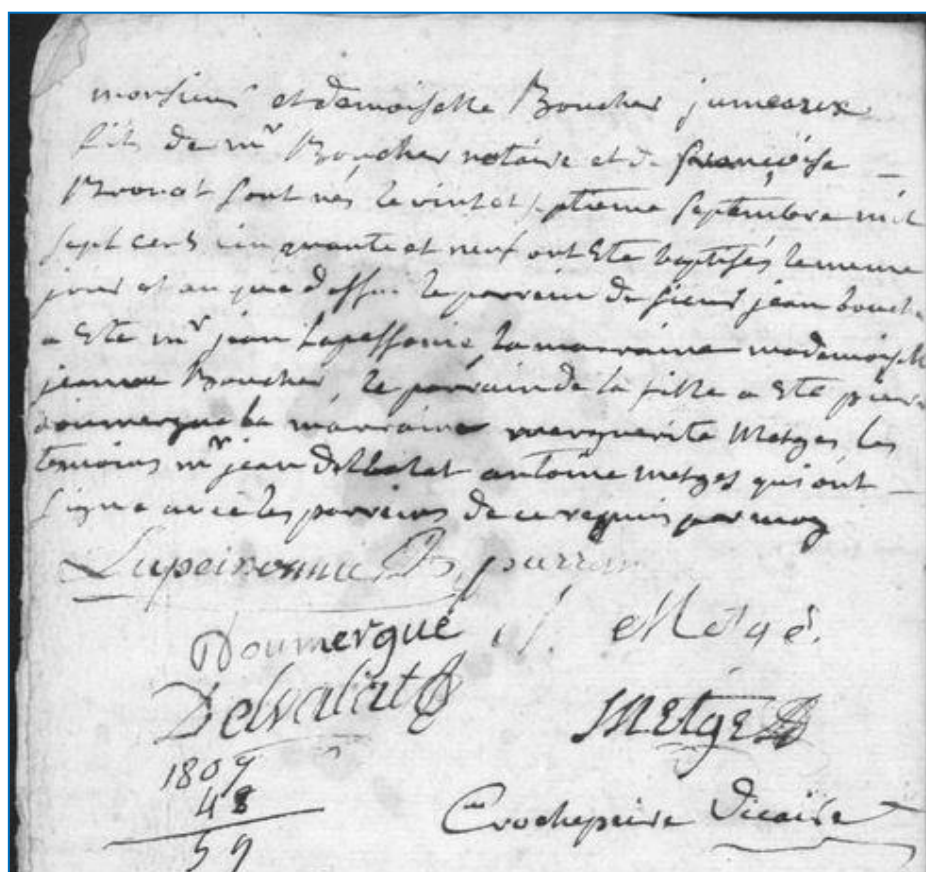 monsieur et demoiselle Boucher jumeaux
fils de mr Boucher notaire et de françoise
Bronat sont nés le vint et septieme septembre mil
sept cens cinquante et neuf ont este baptisés le meme
jour et an que dessus le parrein de sieur jean bouche
a este mr jean la marraine mademoiselle
jeanne Boucher, le parrain de la fille a este pierre
doumergue la marraine marguerite Metges les
temoins mr jean antoine metges qui ont
signe avec les parreins de ce requis par moy
Lapeironnie parrein
Doumergue Metges
Delvalat Metges
1809
48
59
Crochepeire vicaire